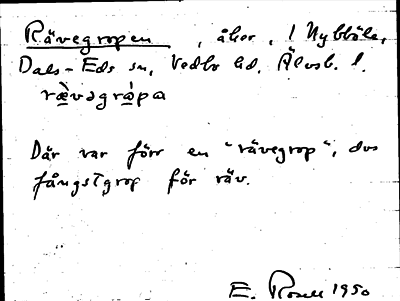 Rävegropen, åker, 1 Nybböle,
Dals-Eds sn, Vedbo hd, Älvsb. l.
rævəgråpa
Där var förr en "rävegrop", dvs
fångstgrop för räv.
E. Rosell 1950